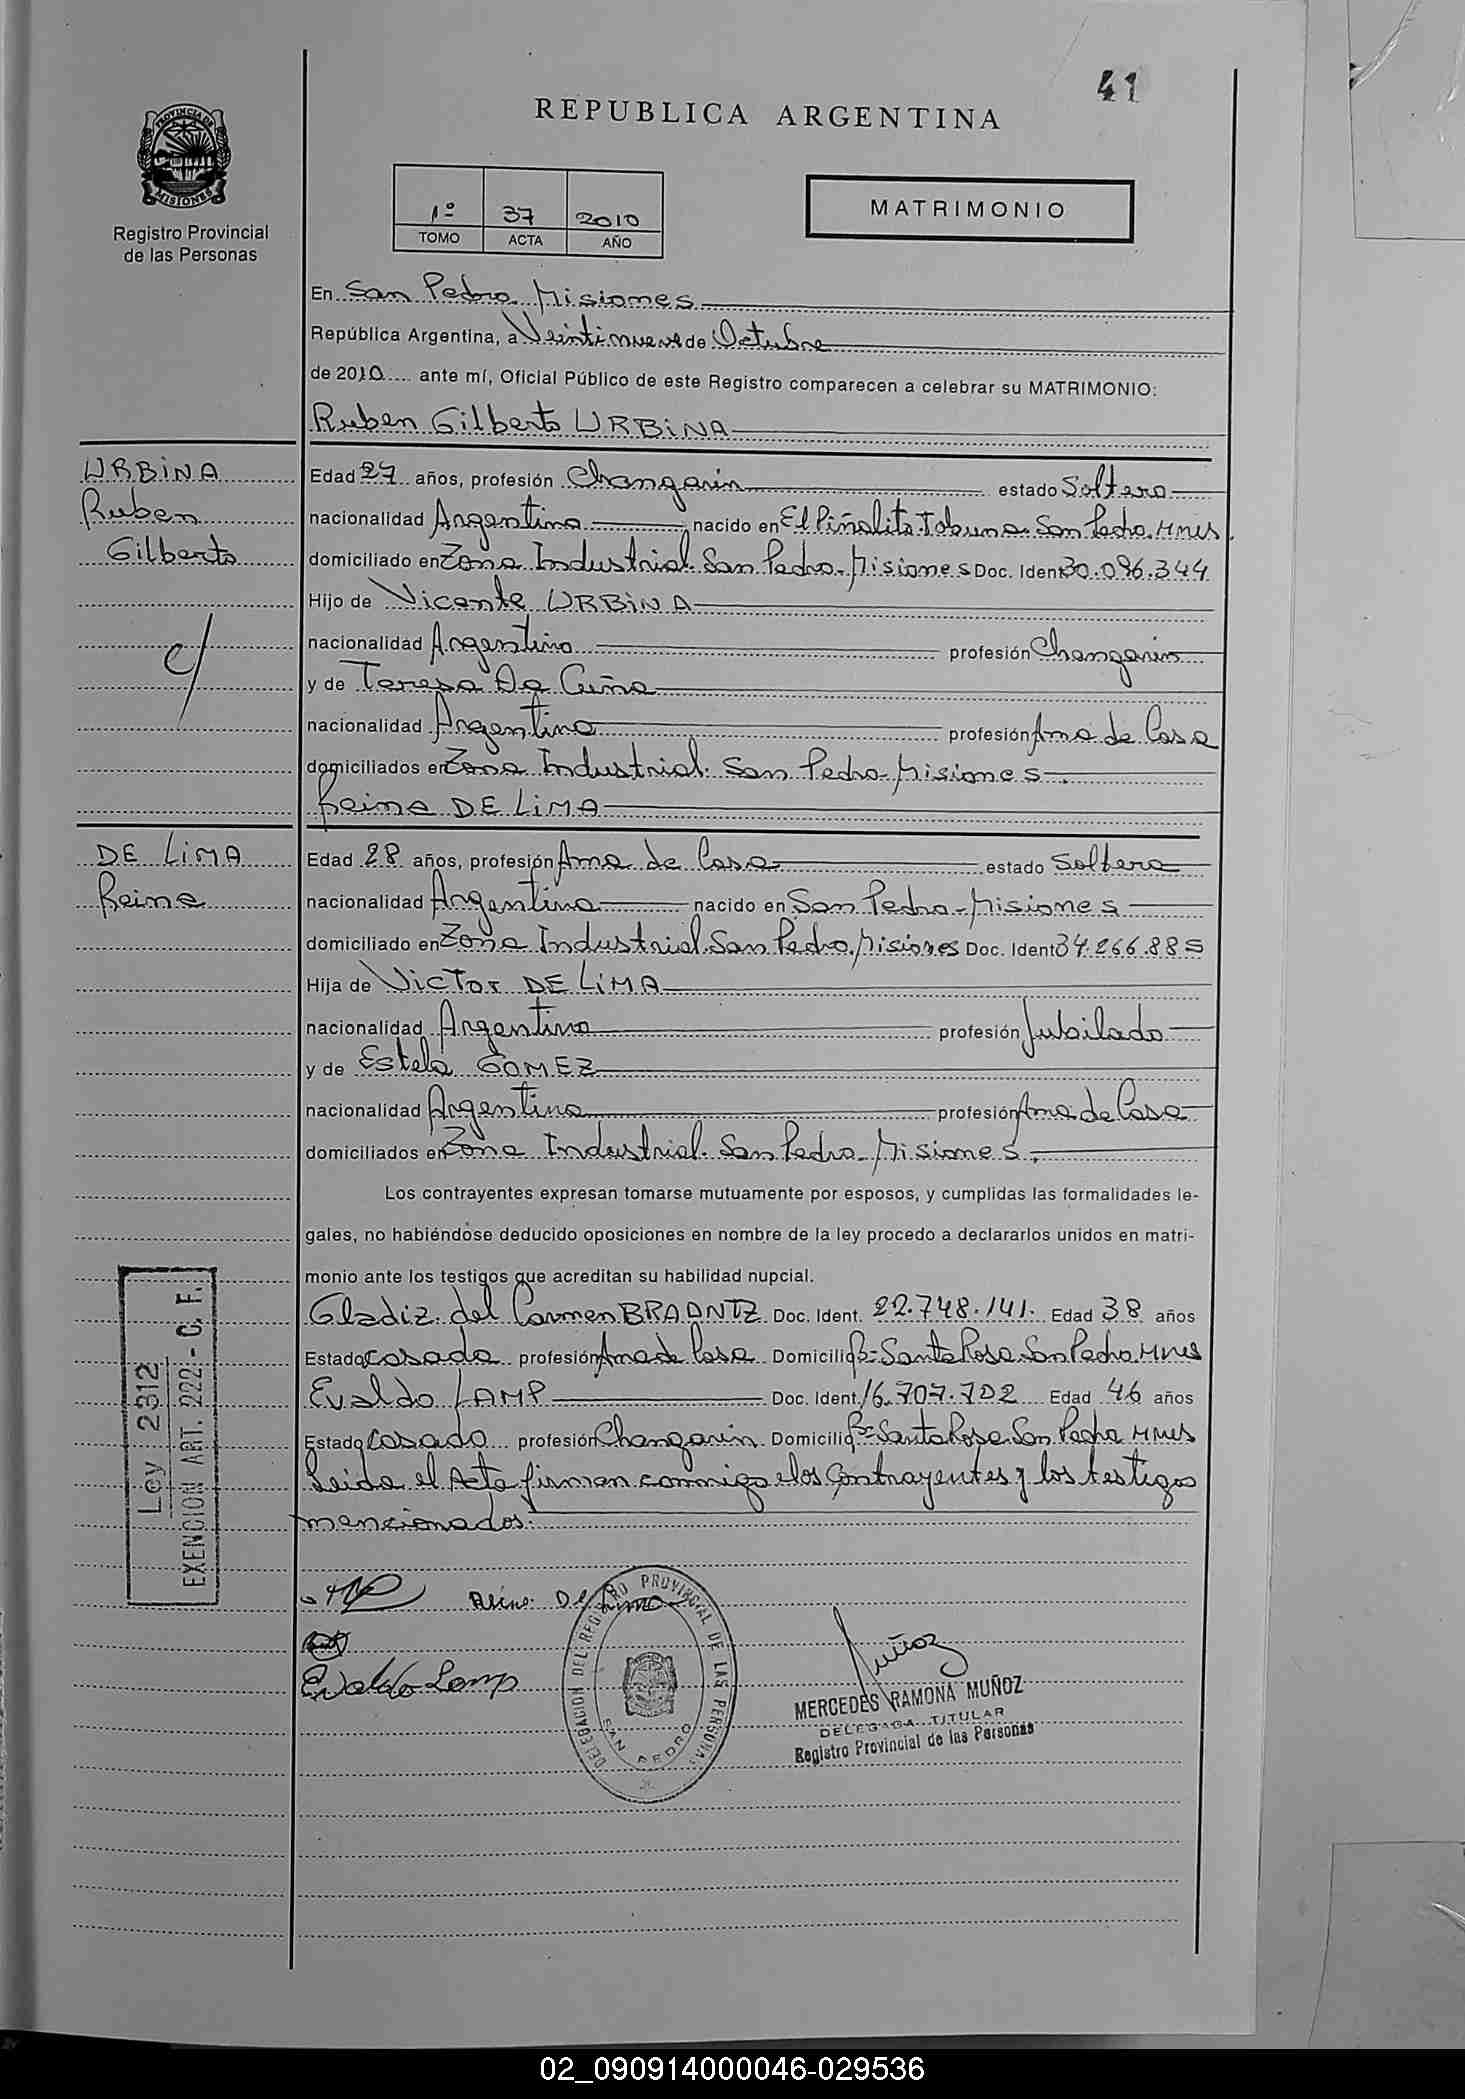 41
REPUBLICA ARGENTINA
PROVINCIA DE
MISIONES
Registro Provincial
de las Personas
1º 37 2010
TOMO ACTA AÑO
MATRIMONIO
En San Pedro Misiones
República Argentina, a Veintinueve de Octubre
de 2010 ante mí, Oficial Público de este Registro comparecen a celebrar su MATRIMONIO:
Ruben Gilberto URBINA
URBINA
Ruben
Gilberto
c/
Edad 27 años, profesión Changarin estado Soltero
nacionalidad Argentina nacido en El Piñalito Tobuna San Pedro Mnes.
domiciliado en Zona Industrial. San Pedro. Misiones Doc. Ident 30.096.344
Hijo de Vicente URBINA
nacionalidad Argentino profesión Changarin
y de Teresa Da Cuña
nacionalidad Argentina profesión Ama de Casa
domiciliados en Zona Industrial. San Pedro-Misiones
Reina DE LIMA
DE LIMA
Reina
Edad 28 años, profesión Ama de Casa estado Soltera
nacionalidad Argentina nacido en San Pedro-Misiones
domiciliado en Zona Industrial. San Pedro. Misiones Doc. Ident 34.266.885
Hija de Victor DE LIMA
nacionalidad Argentino profesión Jubilado
y de Estela GOMEZ
nacionalidad Argentina profesión Ama de Casa
domiciliados en Zona Industrial. San Pedro-Misiones.
Los contrayentes expresan tomarse mutuamente por esposos, y cumplidas las formalidades le-
gales, no habiéndose deducido oposiciones en nombre de la ley procedo a declararlos unidos en matri-
monio ante los testigos que acreditan su habilidad nupcial.
Gladiz del Carmen BRAANTZ Doc. Ident. 22.748.141. Edad 38 años
Estado casada profesión Ama de Casa Domicilio Bº Santa Rosa San Pedro Mnes
Evaldo LAMP Doc. Ident. 16.707.702 Edad 46 años
Estado casado profesión Changarin Domicilio Bº Santa Rosa San Pedro Mnes
Leida el Acta firman conmigo los contrayentes y los testigos
mencionados.
Ley 2312
EXENCION ART. 222 - C. F.
Reina De Lima
Evaldo Lamp
DELEGACION DEL REGISTRO PROVINCIAL DE LAS PERSONAS
SAN PEDRO
Muñoz
MERCEDES RAMONA MUÑOZ
DELEGADA TITULAR
Registro Provincial de las Personas
02_090914000046-029536